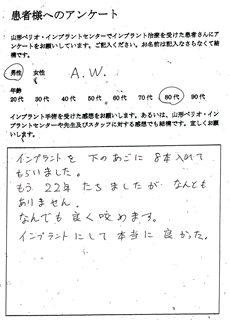 患者様へのアンケート
山形ペリオ・インプラントセンターでインプラント治療を受けた患者さんにア
ンケートをお願いしています。ご記入ください。お名前は記入なさらなくて結
構です。
男性 女性 A.W.
年齢
20代 30代 40代 50代 60代 70代 80代 90代
インプラント手術を受けた感想をお願いします。あるいは、山形ペリオ・イン
プラントセンターや先生及びスタッフに対する感想でも結構です。宜しくお願
いします。
インプラントを 下のあごに 8本入れて
もらいました。
もう 22年 たちましたが なんとも
ありません。
なんでも 良く 咬めます。
インプラントにして 本当に 良かった。